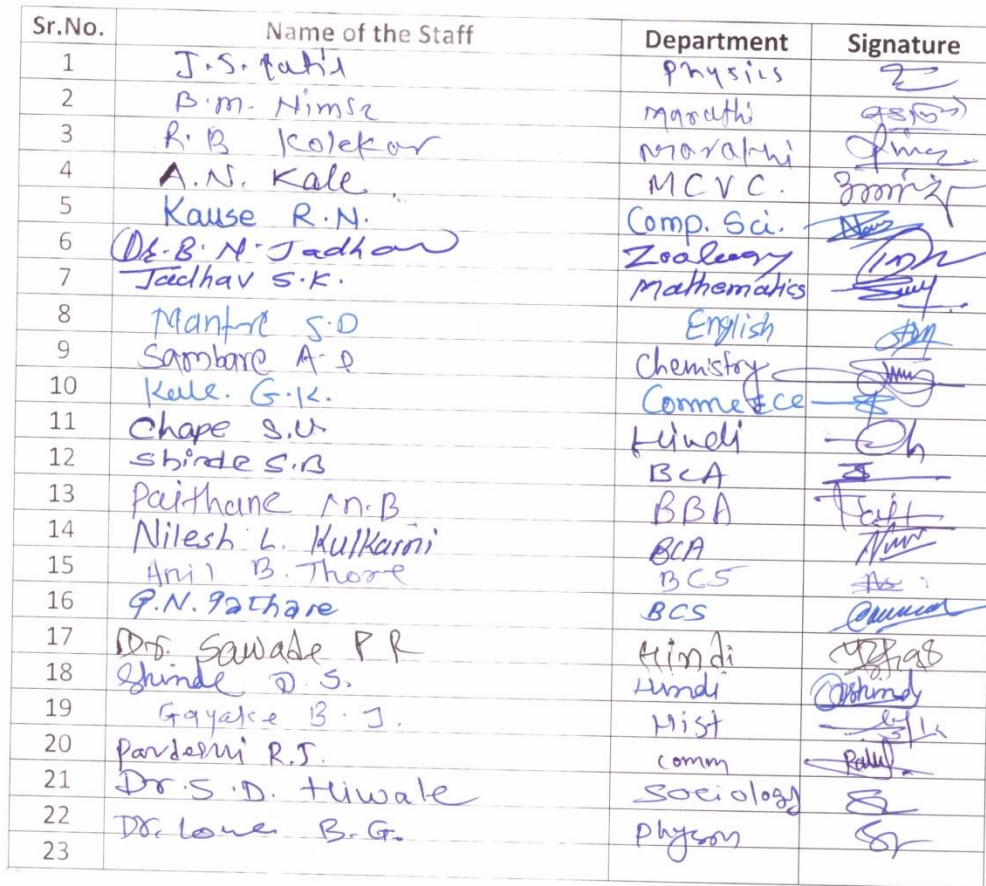 Sr.No. Name of the Staff Department Signature
1 J.S. Patil Physics
2 B.M. Nimse Marathi
3 R.B Kolekar Marathi
4 A.N. Kale MCVC.
5 Kause R.N. Comp. Sci.
6 Dr. B.N. Jadhav Zoology
7 Jadhav S.K. Mathematics
8 S.D English
9 Sambare A. Chemistry
10 Kale. G.K. Commerce
11 Chape S.U Hindi
12 Shinde S.B BCA
13 Paithane M.B BBA
14 Nilesh L. Kulkarni BCA
15 Anil B. Thore BCS
16 G.N. Gathare BCS
17 Dr. Sawade P R Hindi
18 Shinde D.S. Hindi
19 Gayake B.J. Hist
20 Pardeshi R.J. comm
21 Dr. S.D. Hiwale Sociology
22 Dr. B.G.
23